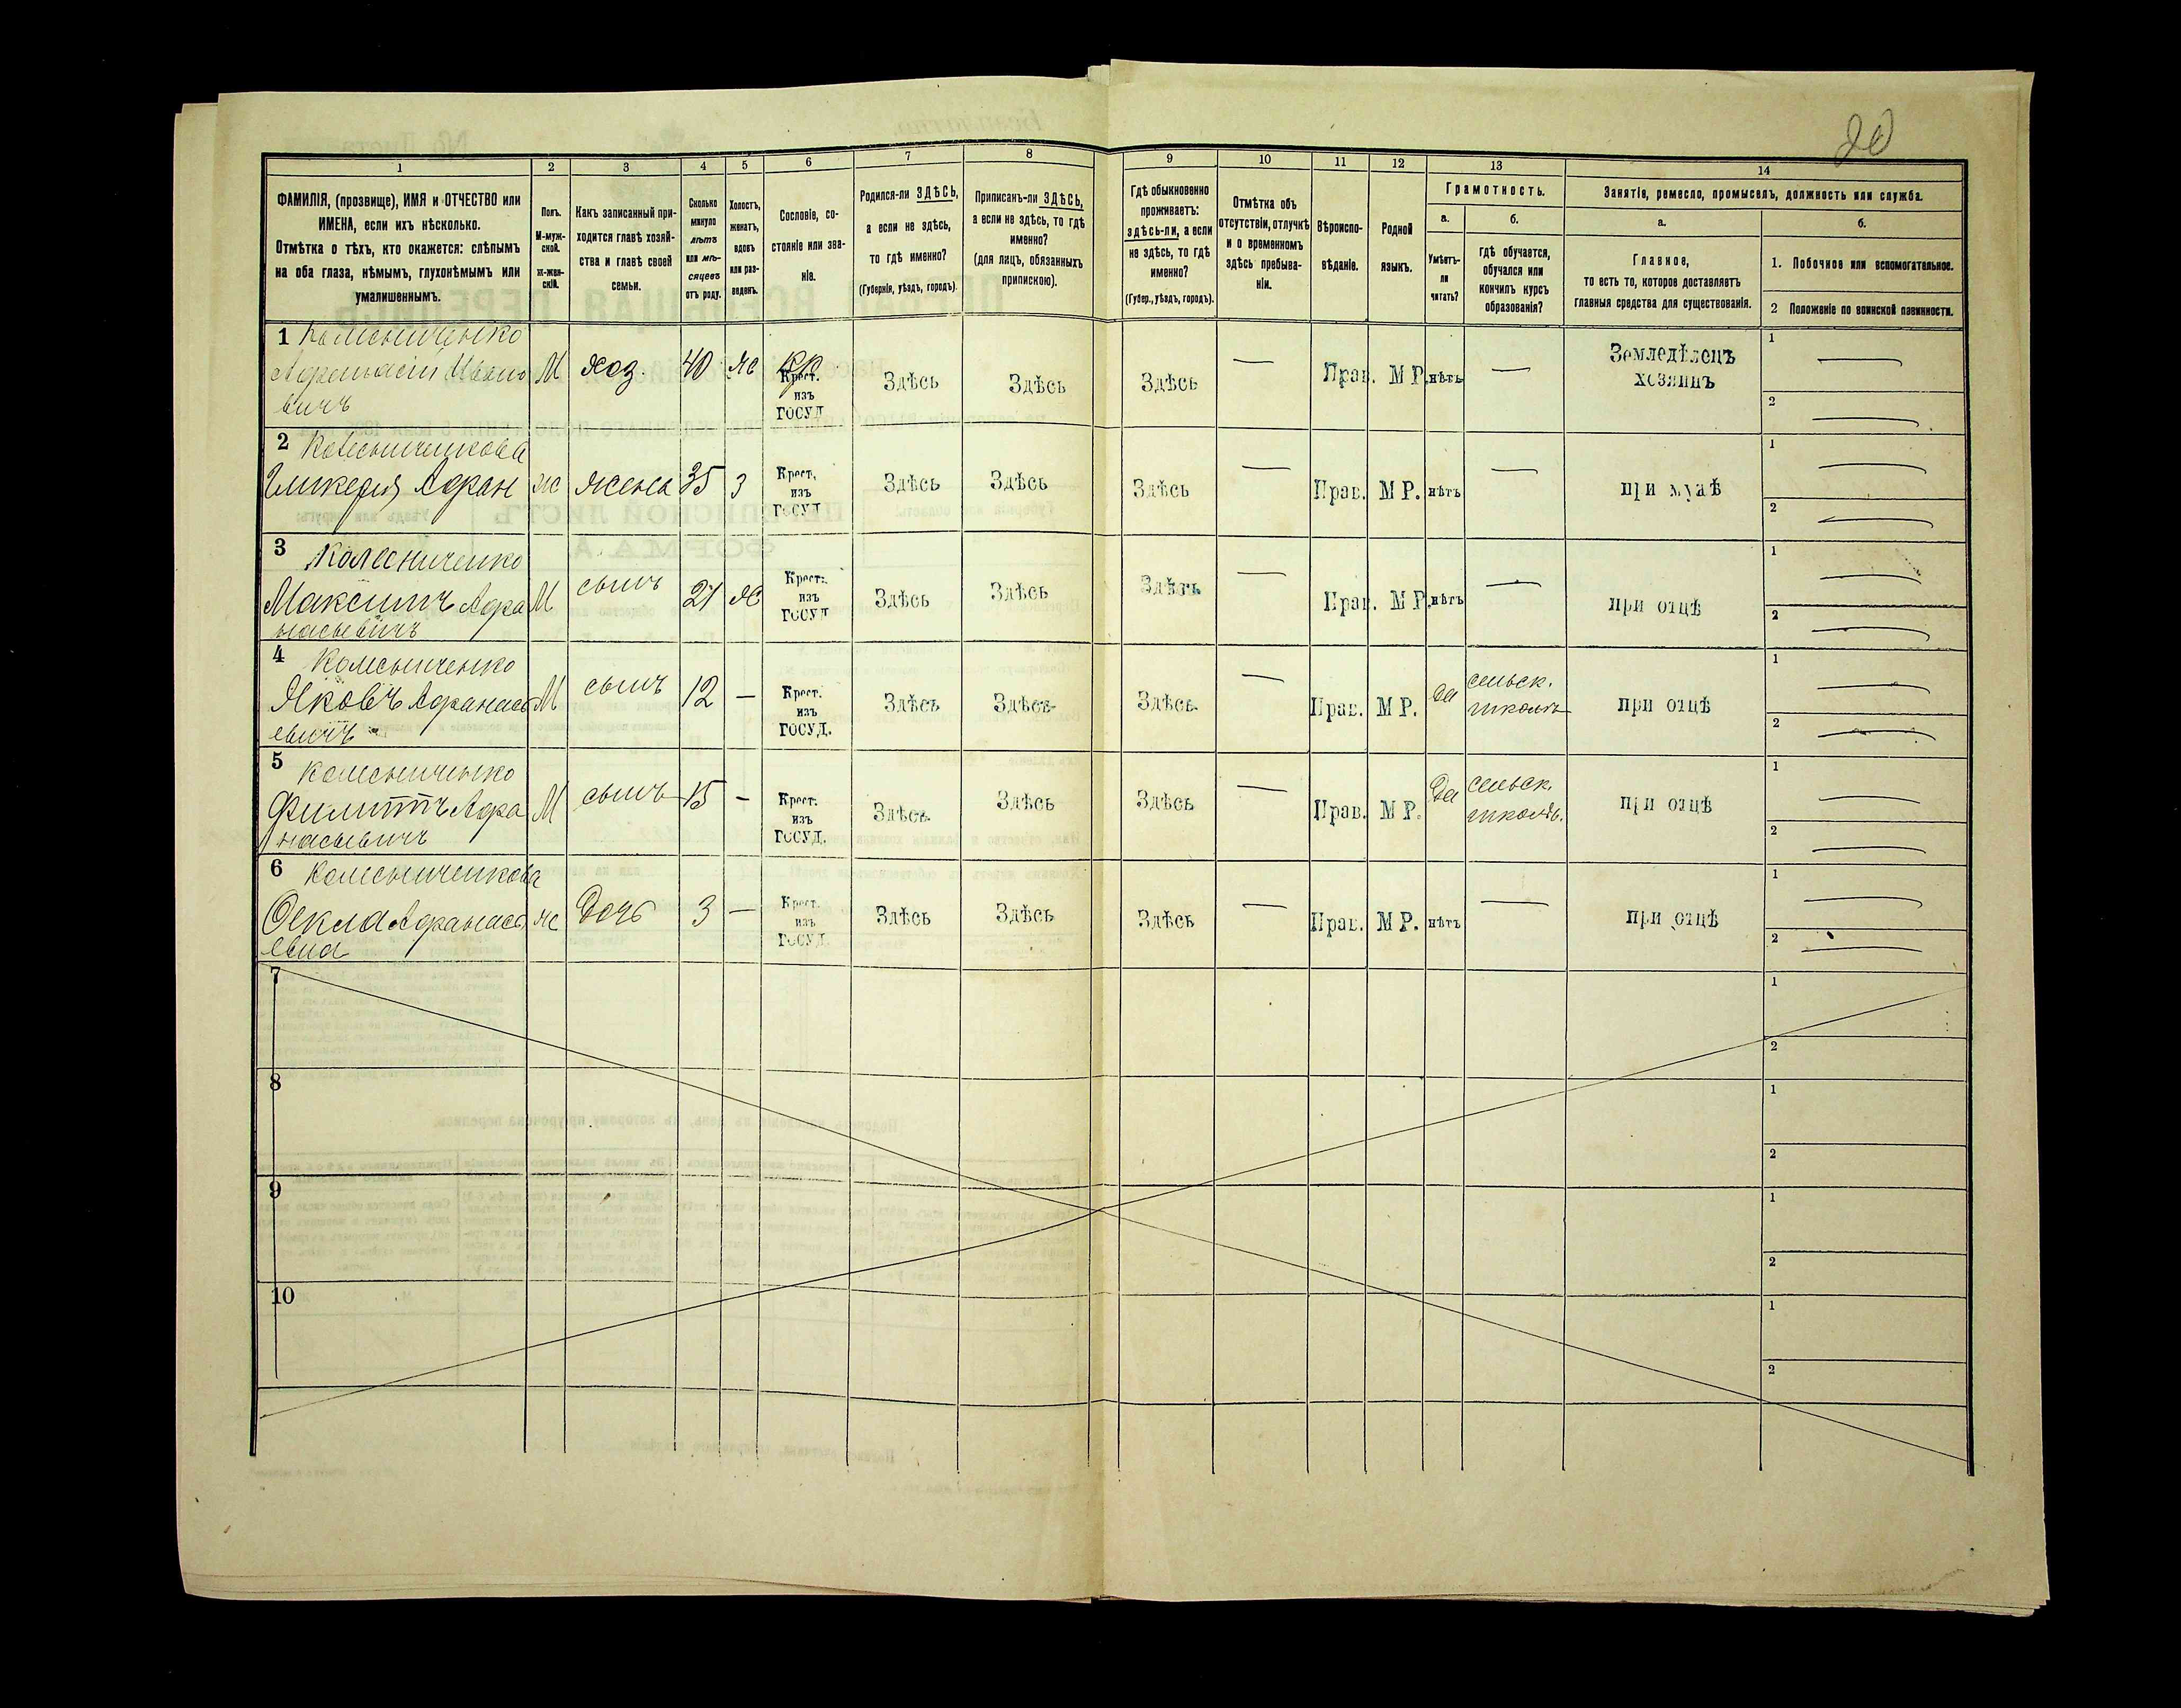 20
1 2 3 4 5 6 7 8 9 10 11 12 13 14
ФАМИЛІЯ, (прозвище), ИМЯ и ОТЧЕСТВО или
ИМЕНА, если ихъ нѣсколько.
Отмѣтка о тѣхъ, кто окажется: слѣпымъ
на оба глаза, нѣмымъ, глухонѣмымъ или
умалишеннымъ.
Полъ.
М-муж-
ской.
ж-жен-
скій.
Какъ записанный при-
ходится главѣ хозяй-
ства и главѣ своей
семьи.
Сколько
минуло
лѣтъ
или мѣ-
сяцевъ
отъ роду.
Холостъ,
женатъ,
вдовъ
или раз-
веденъ.
Сословіе, со-
стояніе или зва-
ніе.
Родился-ли ЗДѢСЬ,
а если не здѣсь,
то гдѣ именно?
(Губернія, уѣздъ, городъ).
Приписанъ-ли ЗДѢСЬ,
а если не здѣсь, то гдѣ
именно?
(для лицъ, обязанныхъ
припискою).
Гдѣ обыкновенно
проживаетъ:
здѣсь-ли, а если
не здѣсь, то гдѣ
именно?
(Губер., уѣздъ, городъ).
Отмѣтка объ
отсутствіи, отлучкѣ
и о временномъ
здѣсь пребыва-
ніи.
Вѣроиспо-
вѣданіе.
Родной
языкъ.
Грамотность.
а.
Умѣетъ-
ли
читать?
б.
Гдѣ обучается,
обучался или
кончилъ курсъ
образованія?
Занятіе, ремесло, промыселъ, должность или служба.
а.
Главное,
то есть то, которое доставляетъ
главныя средства для существованія.
б.
1. Побочное или вспомогательное.
2 Положеніе по воинской повинности.
1 Колесниченко
Афанасій Ивано
вичъ
М хоз. 40 ж кр.
Крест.
изъ
ГОСУД
Здѣсь Здѣсь Здѣсь — Прав. М Р. нѣтъ —
Земледѣлецъ
хозяинъ
1 —
2 —
2 Колесниченкова
Гликерія Афан
ж жена 35 з
Крест.
изъ
ГОСУД
Здѣсь Здѣсь Здѣсь — Прав. М Р. нѣтъ — при мужѣ
1 —
2 —
3 Колесниченко
Максимъ Афа
насьевичъ
М сынъ 21 ж
Крест.
изъ
ГОСУД
Здѣсь Здѣсь Здѣсь — Прав. М Р. нѣтъ — при отцѣ
1 —
2 —
4 Колесниченко
Яковъ Афанась
евичъ
М сынъ 12 —
Крест.
изъ
ГОСУД.
Здѣсь Здѣсь Здѣсь — Прав. М Р. да
сельск.
школѣ
при отцѣ
1 —
2 —
5 Колесниченко
Филиппъ Афа
насьевичъ
М сынъ 15 -
Крест.
изъ
ГОСУД.
Здѣсь Здѣсь Здѣсь — Прав. М Р. да
сельск.
школѣ.
при отцѣ
1 —
2 —
6 Колесниченкова
Ѳекла Афанась
евна
ж дочь 3 —
Крест.
изъ
ГОСУД.
Здѣсь Здѣсь Здѣсь — Прав. М Р. нѣтъ — при отцѣ
1 —
2 —
7
1
2
8
1
2
9
1
2
10
1
2